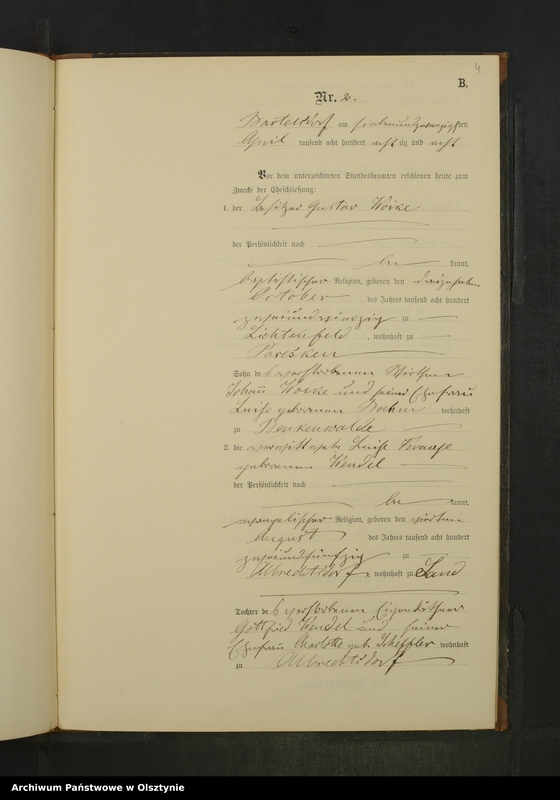 4
B.
Nr. 2.
Bartelsdorf am siebenundzwanzigsten
April tausend acht hundert achtzig und acht
Vor dem unterzeichneten Standesbeamten erschienen heute zum
Zwecke der Eheschließung:
1. der Besitzer Gustav Woike
der Persönlichkeit nach
be kannt,
baptistischer Religion, geboren den dreizehnten
October des Jahres tausend acht hundert
zweiundvierzig zu
Lichtenfeld, wohnhaft zu
Paresken
Sohn des verstorbenen Wirthen
Johann Woike und seiner Ehefrau
Luise geborenen Boehm wohnhaft
zu Benkenwalde
2. die verwittwete Luise Krause
geborene Wendel
der Persönlichkeit nach
be kannt,
evangelischer Religion, geboren den vierten
August des Jahres tausend acht hundert
zweiundfünfzig zu
Albrechtsdorf, wohnhaft zu Sand
Tochter des verstorbenen Eigenkäthner
Gottfried Wendel und seiner
Ehefrau Charlotte geb. Scheffler wohnhaft
zu Albrechtsdorf
Archiwum Państwowe w Olsztynie